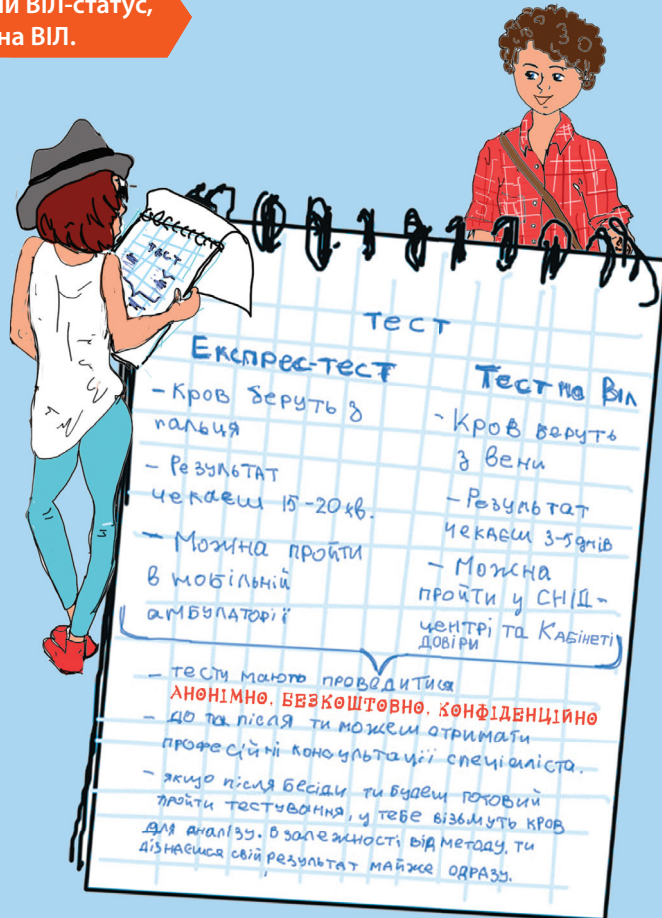 ВІЛ-статус,
на ВІЛ.
тест
тест
Експрес-тест
– Кров беруть з
пальця
– Результат
чекаєш 15-20 хв.
– Можна пройти
в мобільній
амбулаторії
Тест на ВІЛ
- Кров беруть
з вени
– Результат
чекаєш 3-5 днів
– Можна
пройти у СНІД-
центрі та Кабінеті
довіри
– тести мають проводитися
АНОНІМНО, БЕЗКОШТОВНО, КОНФІДЕНЦІЙНО
– до та після ти можеш отримати
професійні консультації спеціаліста.
– якщо після бесіди ти будеш готовий
пройти тестування, у тебе візьмуть кров
для аналізу. В залежності від методу, ти
дізнаєшся свій результат майже одразу.